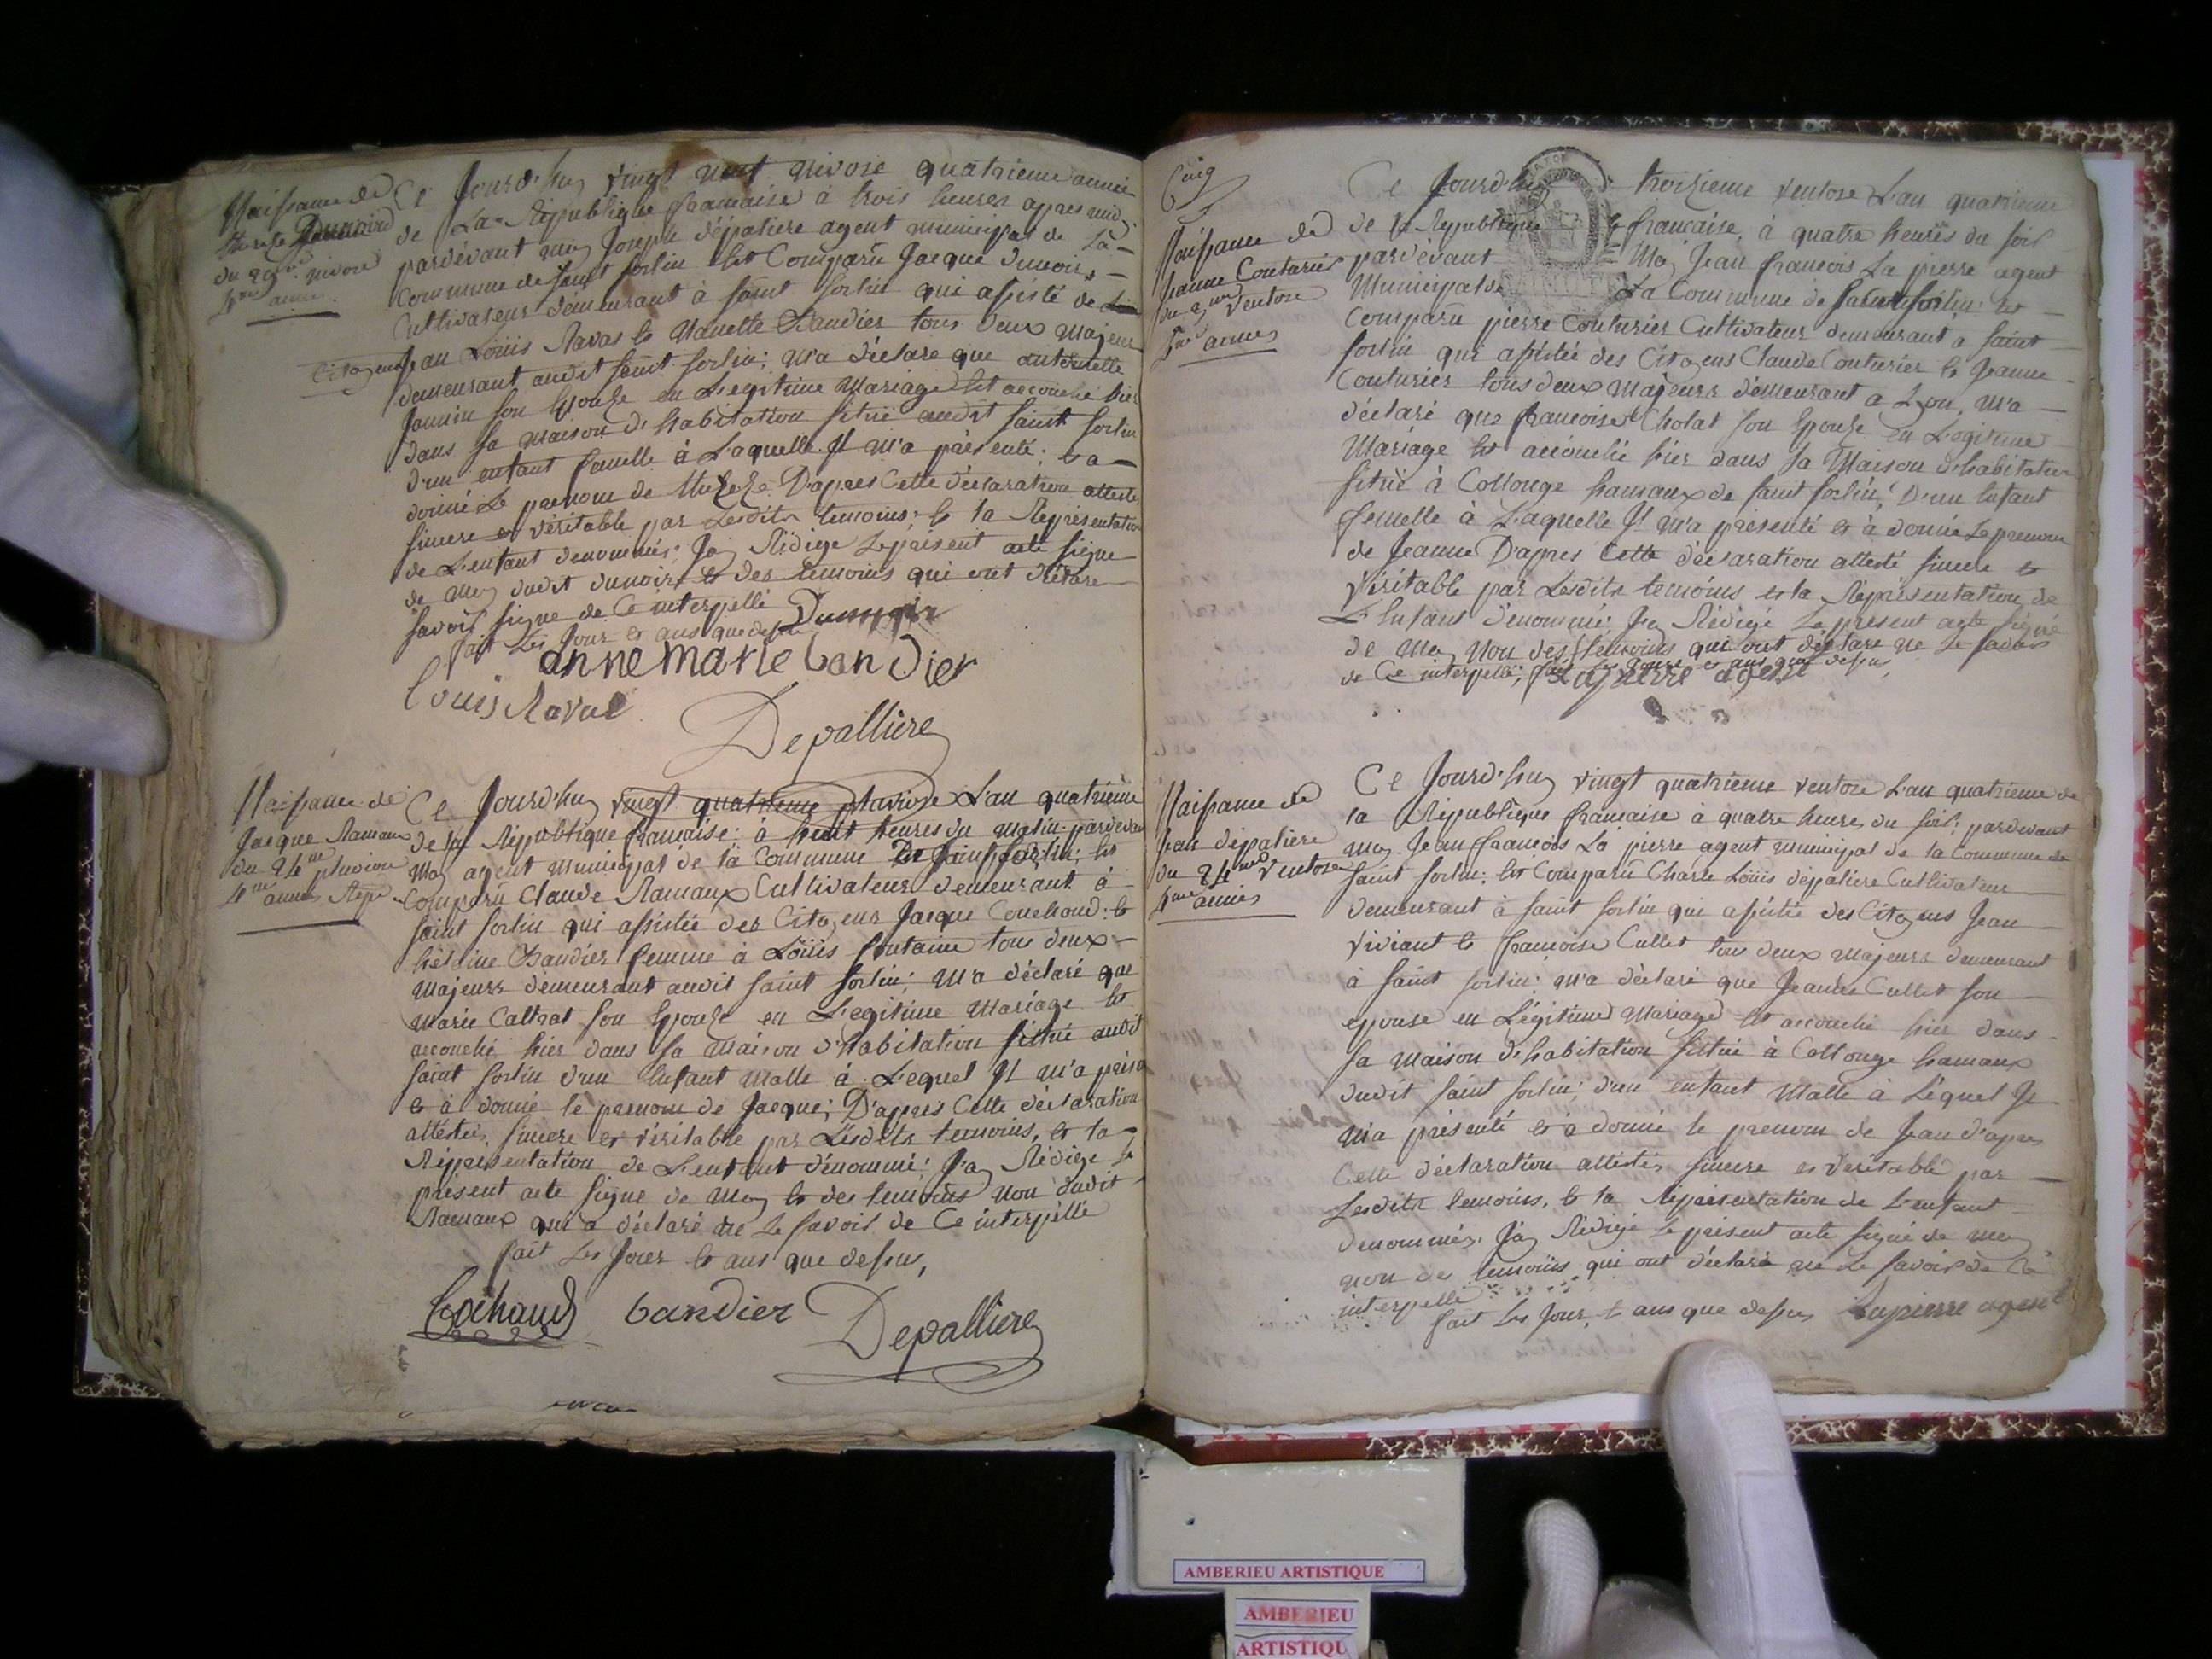 Naissance de
du 29me nivose
4me année
Ce Jourd'huy vingt neuf nivose quatrieme année
de La République francaise à trois heures apres midy
pardévant moy Joseph dépaliere agent municipal de La
Commune de saint sorlin Est Comparu Jacque Dunoir
Cultivateur demeurant à saint sorlin qui assisté de
Citoyens Jean Loüis Ravas et Manette Bandier tous deux Majeurs
demeurant audit saint sorlin; m'a déclaré que antoinette
Janin son Epouse en Légitime Mariage Est accouché hier
dans sa maison d'habitation situé audit saint sorlin
d'un enfant femelle à Laquelle Il m'a présenté; et a
donné Le prenom de D'apres Cette déclaration attesté
sincere et véritable par Lesdits temoins; et la Réprésentation
de L'enfant denommés; Jay Rédigé Le présent acte signe
de moy dudit dunoir et des temoins qui ont déclaré
savoir signe de Ce interpellé Dunoir
fait Les Jour et ans que dessus
anne marie bandier
Louis Raval
Depalliere
Naissance de
Jacque Ramaux
du 24me pluviose
4me année Repu.
Ce Jourd'huy vingt quatrieme pluviose L'an quatrieme
de la République francaise: à huit heures du matin pardevant
Moy agent municipal de la Commune De saint sorlin; Est
Comparu Claude Ramaux Cultivateur demeurant à
saint sorlin qui assistée des Citoyens Jacque Couchoud: et
Bandier femme à Loüis fontaine tous deux
Majeurs demeurant audit saint sorlin; M'a déclaré que
Marie Caltrat son Epouse en Légitime Mariage Est
accouché hier dans sa maison d'habitation situé audit
saint sorlin d'un Enfant Malle à Lequel Il m'a présenté
et à donné le prenom de Jacque; D'apres Cette déclaration
attestée, sincere et véritable par Lesdits temoins, et la
Réprésentation de L'enfant dénommé: J'ay Rédigé le
présent acte signe de moy et des temoins non dudit
Ramaux qui a déclaré ne Le savoir de Ce interpellé
fait Les Jour et ans que dessus,
Cochaud bandier Depalliere
Cinq
Naissance de
Jeanne Couturier
Ventose
4me année
Ce Jourd'huy troizieme ventose L'an quatrieme
de la République francaise, à quatre heures du soir
pardévant Moy Jean francois La pierre agent
Municipal de La Commune de saint sorlin: Est
Comparu pierre Couturier Cultivateur demeurant a saint
sorlin qui assistée des Citoyens Claude Couturier et Jeanne
Couturier tous deux Majeurs démeurant a Lyon, M'a
déclaré que francoise Cholat son Epouse en Légitime
Mariage Est accouché hier dans sa Maison d'habitation
situé à Collonge hamaux de saint sorlin; D'un Enfant
femelle à Laquelle Il m'a présenté et à donné Le prenom
de Jeanne D'apres Cette déclaration attesté sincere et
Véritable par Lesdits temoins et la Réprésentation de
L'Enfant dénommé: Jay Rédigé Le présent acte signé
de Moy Non des temoins qui ont déclaré ne Le savoir
de Ce interpellé; fait Les Jour et ans que dessus
Lapierre agent
Naissance de
Jean dépaliere
du 24me Ventose
4me année
Ce Jourd'huy vingt quatrieme ventose L'an quatrieme de
la République francaise à quatre heures du soir; pardevant
moy Jean francois La pierre agent municipal de la Commune de
saint sorlin: Est Comparu Charle Loüis dépaliere Cultivateur
demeurant à saint sorlin qui assistée des Citoyens Jean
Viviant et francoise Cullet tous deux majeurs demeurant
à saint sorlin; m'a déclaré que Jeanne Cullet son
epouse en Légitime Mariage Est accouché hier dans
sa maison d'habitation située à Collonge hamaux
dudit saint sorlin; d'un enfant Malle à Lequel Il
m'a présenté et à donné le prenom de Jean d'apres
Cette déclaration attestés, sincere et Véritable par
Lesdits temoins, et la Réprésentation de L'enfant
denommés, J'ay Rédigé le présent acte signé de moy
non des temoins qui ont déclaré ne Le savoir de Ce
interpellé
fait Les Jour et ans que dessus Lapierre agent
AMBERIEU ARTISTIQUE
AMBERIEU
ARTISTIQU